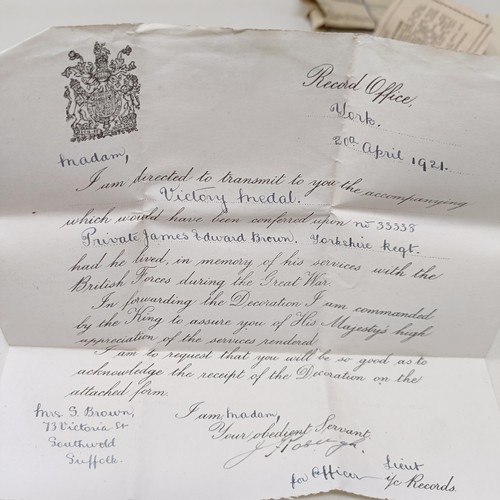 Record Office,
York.
20th April 1921.
Madam,
I am directed to transmit to you the accompanying
Victory Medal.
which would have been conferred upon No 33338
Private James Edward Brown, Yorkshire Regt.
had he lived, in memory of his services with the
British Forces during the Great War.
In forwarding the Decoration I am commanded
by the King to assure you of His Majesty's high
appreciation of the services rendered.
I am to request that you will be so good as to
acknowledge the receipt of the Decoration on the
attached form.
I am, Madam,
Your obedient Servant.
Lieut
for Officer i/c Records.
Mrs G. Brown,
73 Victoria St
Southwold
Suffolk.